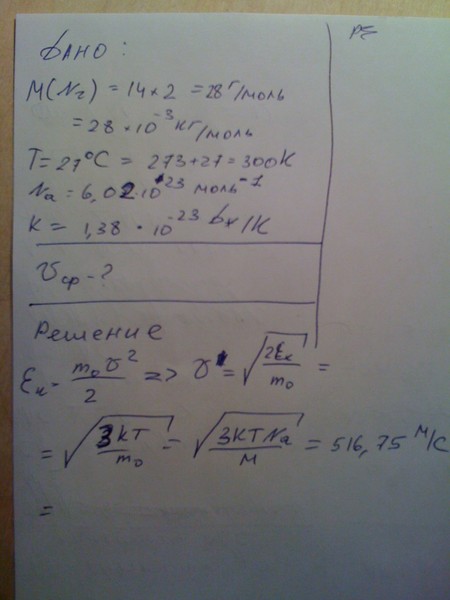 Дано:
РЕ
M(N₂) = 14 × 2 = 28 г/моль
= 28 · 10⁻³ кг/моль
T = 27°C = 273 + 27 = 300K
Na = 6,02 · 10²³ моль⁻¹
K = 1,38 · 10⁻²³ Дж/K
υср - ?
Решение
Eк = m₀υ²/2 => υ = √(2Eк/m₀) =
= √(3KT/m₀) = √(3KTNa/M) = 516,75 м/с
=